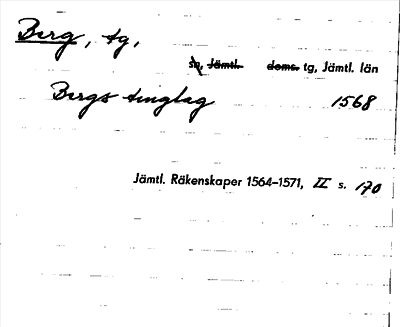 Berg, tg,
sn, Jämtl. doms. tg, Jämtl. län
Bergs tinglag 1568
Jämtl. Räkenskaper 1564–1571, II s. 170